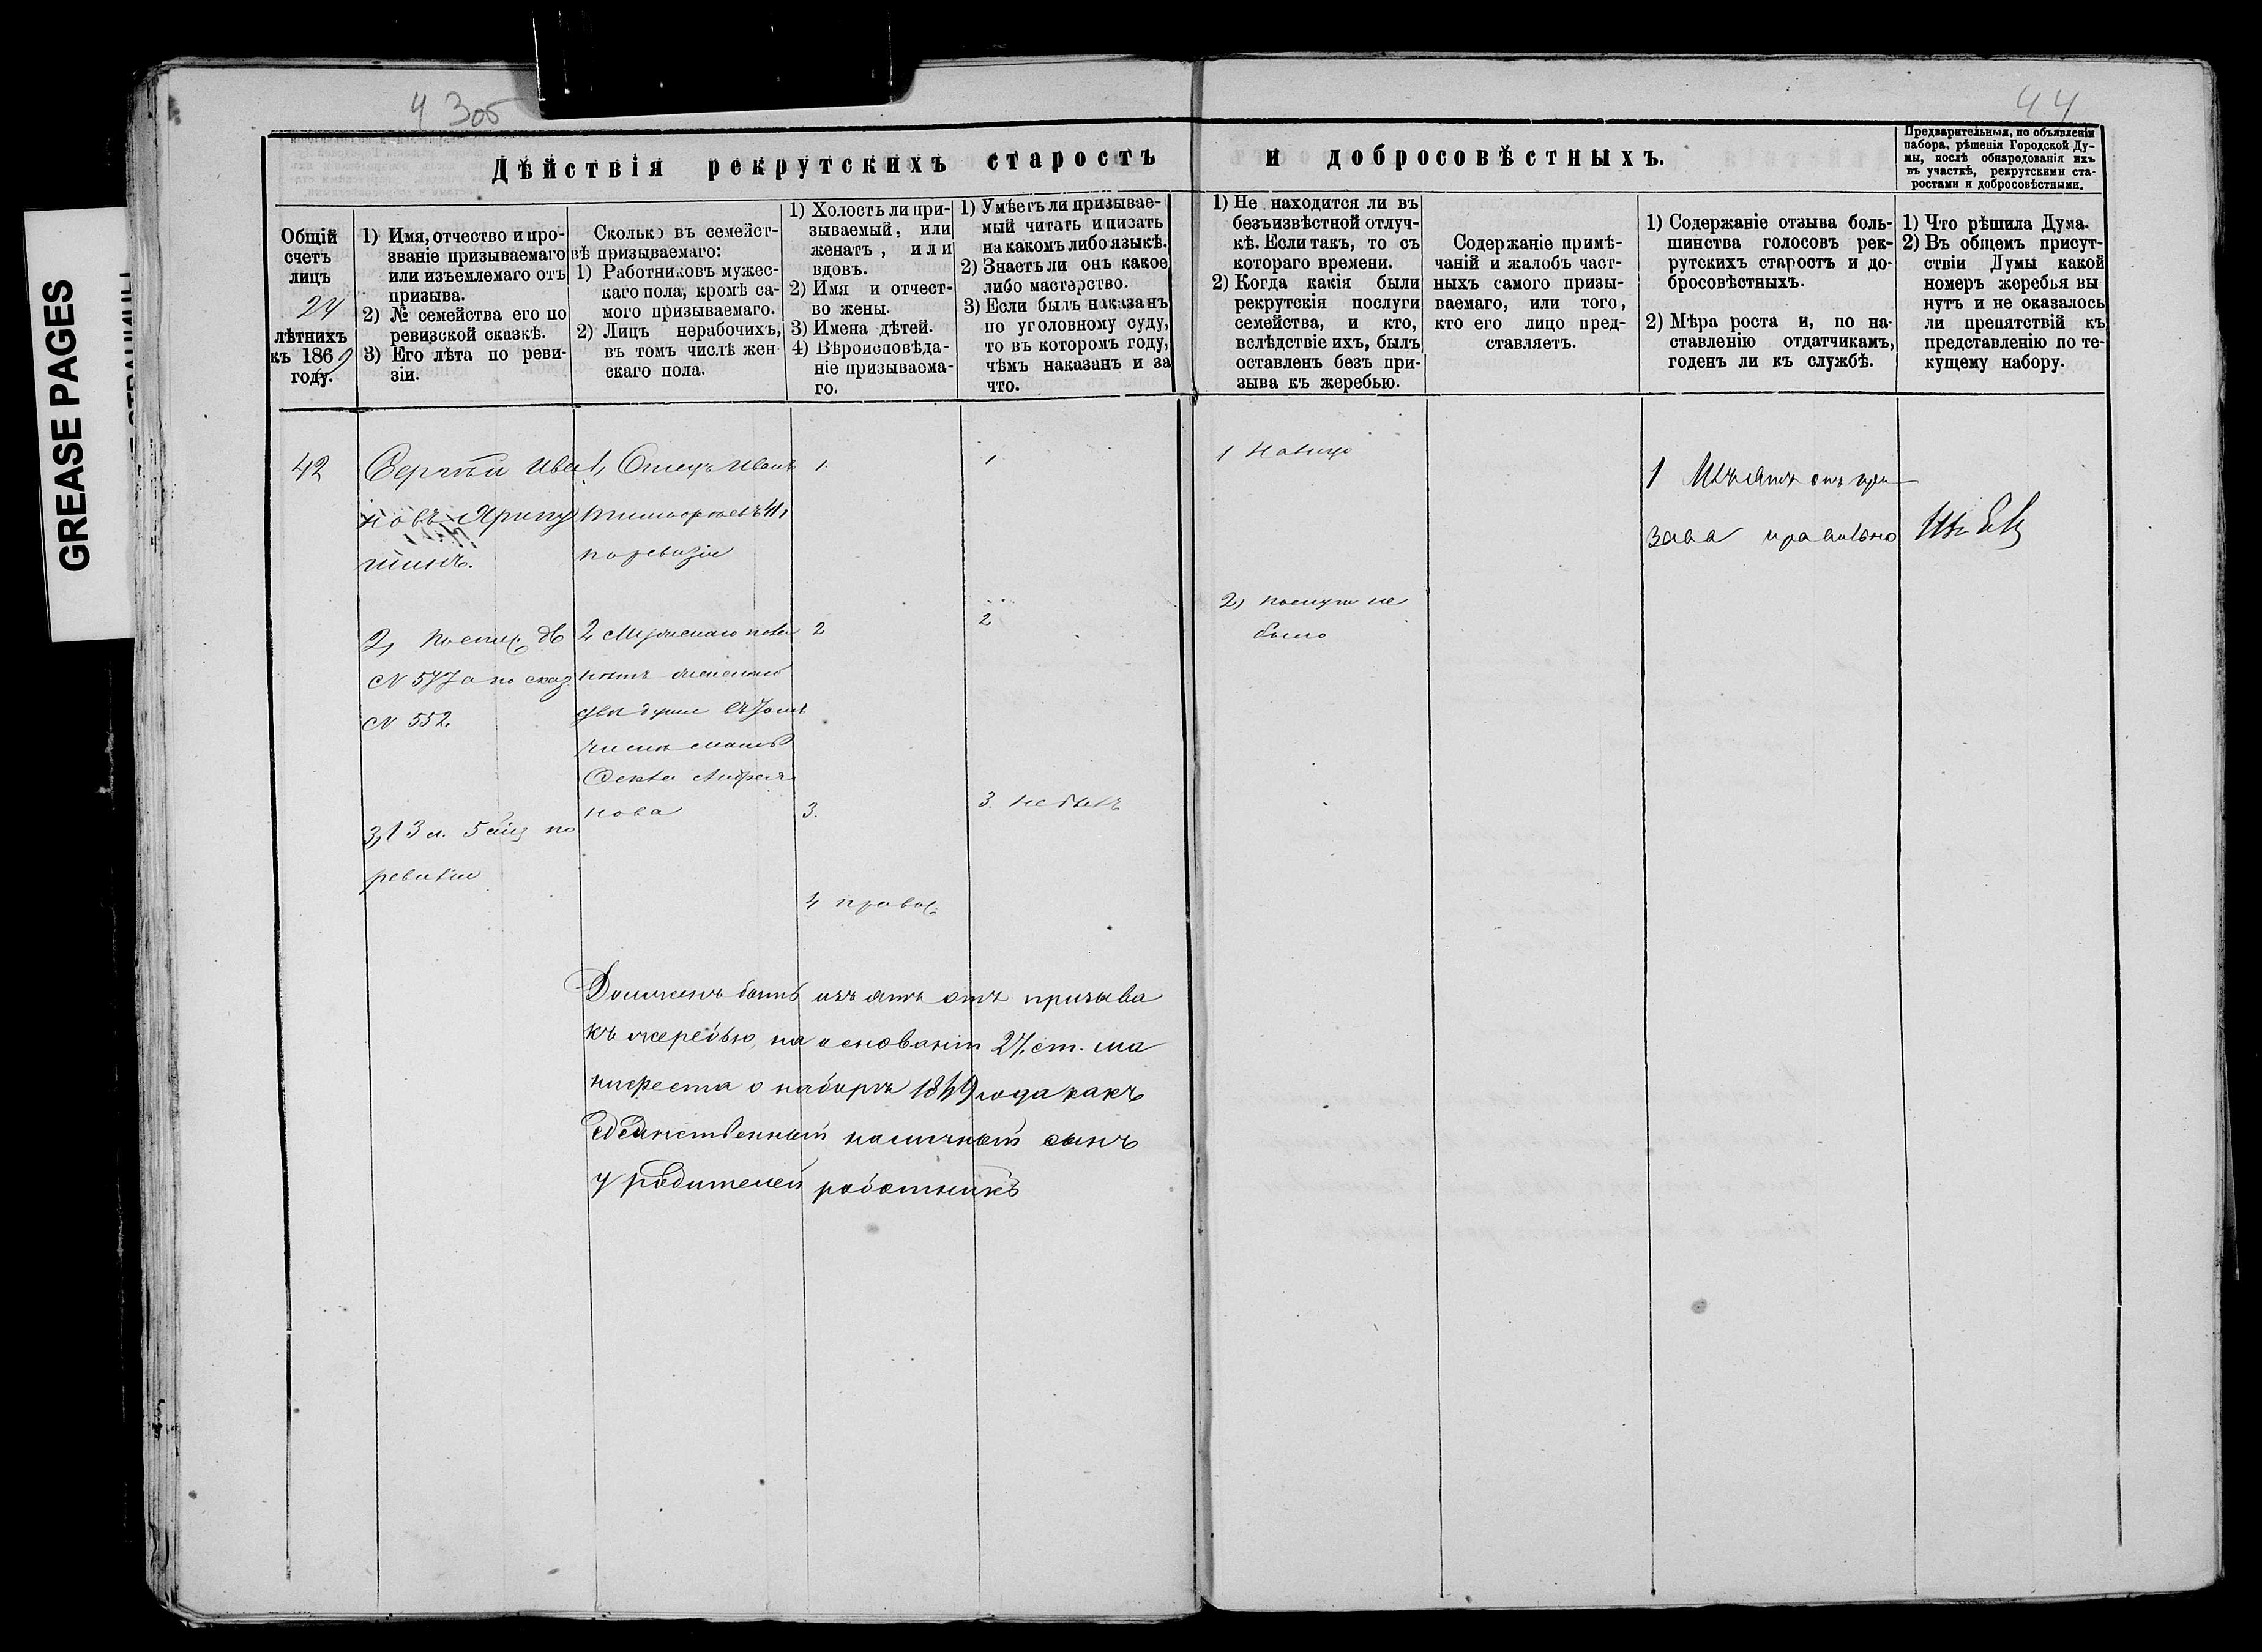 4 3об
44
GREASE PAGES
Дѣйствія рекрутскихъ старостъ и добросовѣстныхъ.
Предварительныя, по объявленіи
набора, рѣшенія Городской Ду-
мы, послѣ обнародованія ихъ
въ участкѣ, рекрутскими ста-
ростами и добросовѣстными.
Общій
счетъ
лицъ
24
лѣтнихъ
къ 1869
году.
1) Имя, отчество и про-
званіе призываемаго
или изъемлемаго отъ
призыва.
2) № семейства его по
ревизской сказкѣ.
3) Его лѣта по реви-
зіи.
Сколько въ семейст-
вѣ призываемаго:
1) Работниковъ мужес-
каго пола, кромѣ са-
мого призываемаго.
2) Лицъ нерабочихъ,
въ томъ числѣ жен-
скаго пола.
1) Холостъ ли при-
зываемый, или
женатъ, или
вдовъ.
2) Имя и отчест-
во жены.
3) Имена дѣтей.
4) Вѣроисповѣда-
ніе призываема-
го.
1) Умѣетъ ли призывае-
мый читать и писать
на какомъ либо языкѣ.
2) Знаетъ ли онъ какое
либо мастерство.
3) Если былъ наказанъ
по уголовному суду,
то въ которомъ году,
чѣмъ наказанъ и за
что.
1) Не находится ли въ
безъизвѣстной отлуч-
кѣ. Если такъ, то съ
котораго времени.
2) Когда какія были
рекрутскія послуги
семейства, и кто,
вслѣдствіе ихъ, былъ
оставленъ безъ при-
зыва къ жеребью.
Содержаніе примѣ-
чаній и жалобъ част-
ныхъ самого призы-
ваемаго, или того,
кто его лицо пред-
ставляетъ.
1) Содержаніе отзыва боль-
шинства голосовъ рек-
рутскихъ старостъ и до-
бросовѣстныхъ.
2) Мѣра роста и, по на-
ставленію отдатчикамъ,
годенъ ли къ службѣ.
1) Что рѣшила Дума.
2) Въ общемъ присут-
ствіи Думы какой
номеръ жеребья вы
нутъ и не оказалось
ли препятствій къ
представленію по те-
кущему набору.
42
Сергѣй Ива
новъ
шинъ.
2, № 577 а по сказ
№ 552.
3, 13 л. 5 мѣс по
ревизіи
1, Отецъ Иванъ
Тимофеевъ 41,
по ревизіи
2, Мужескаго пола
нѣтъ женскаго
двѣ души въ томъ
числѣ мать
Фекла Андрея
нова
1.
2
3.
4 правос.
1
2
3. не былъ
1 Налицо
2, послугъ не
было
1 Изъятъ отъ при-
зыва правильно
Долженъ быть изъятъ отъ призыва
къ жеребью, на основаніи 27. ст. ма
нифеста о наборѣ 1869 года какъ
единственный наличный сынъ
у родителей работникъ